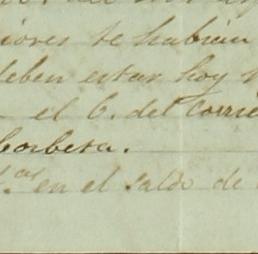 iores se habian
deben estar hoy
el C. del Corrie
Corbera.
en el saldo de